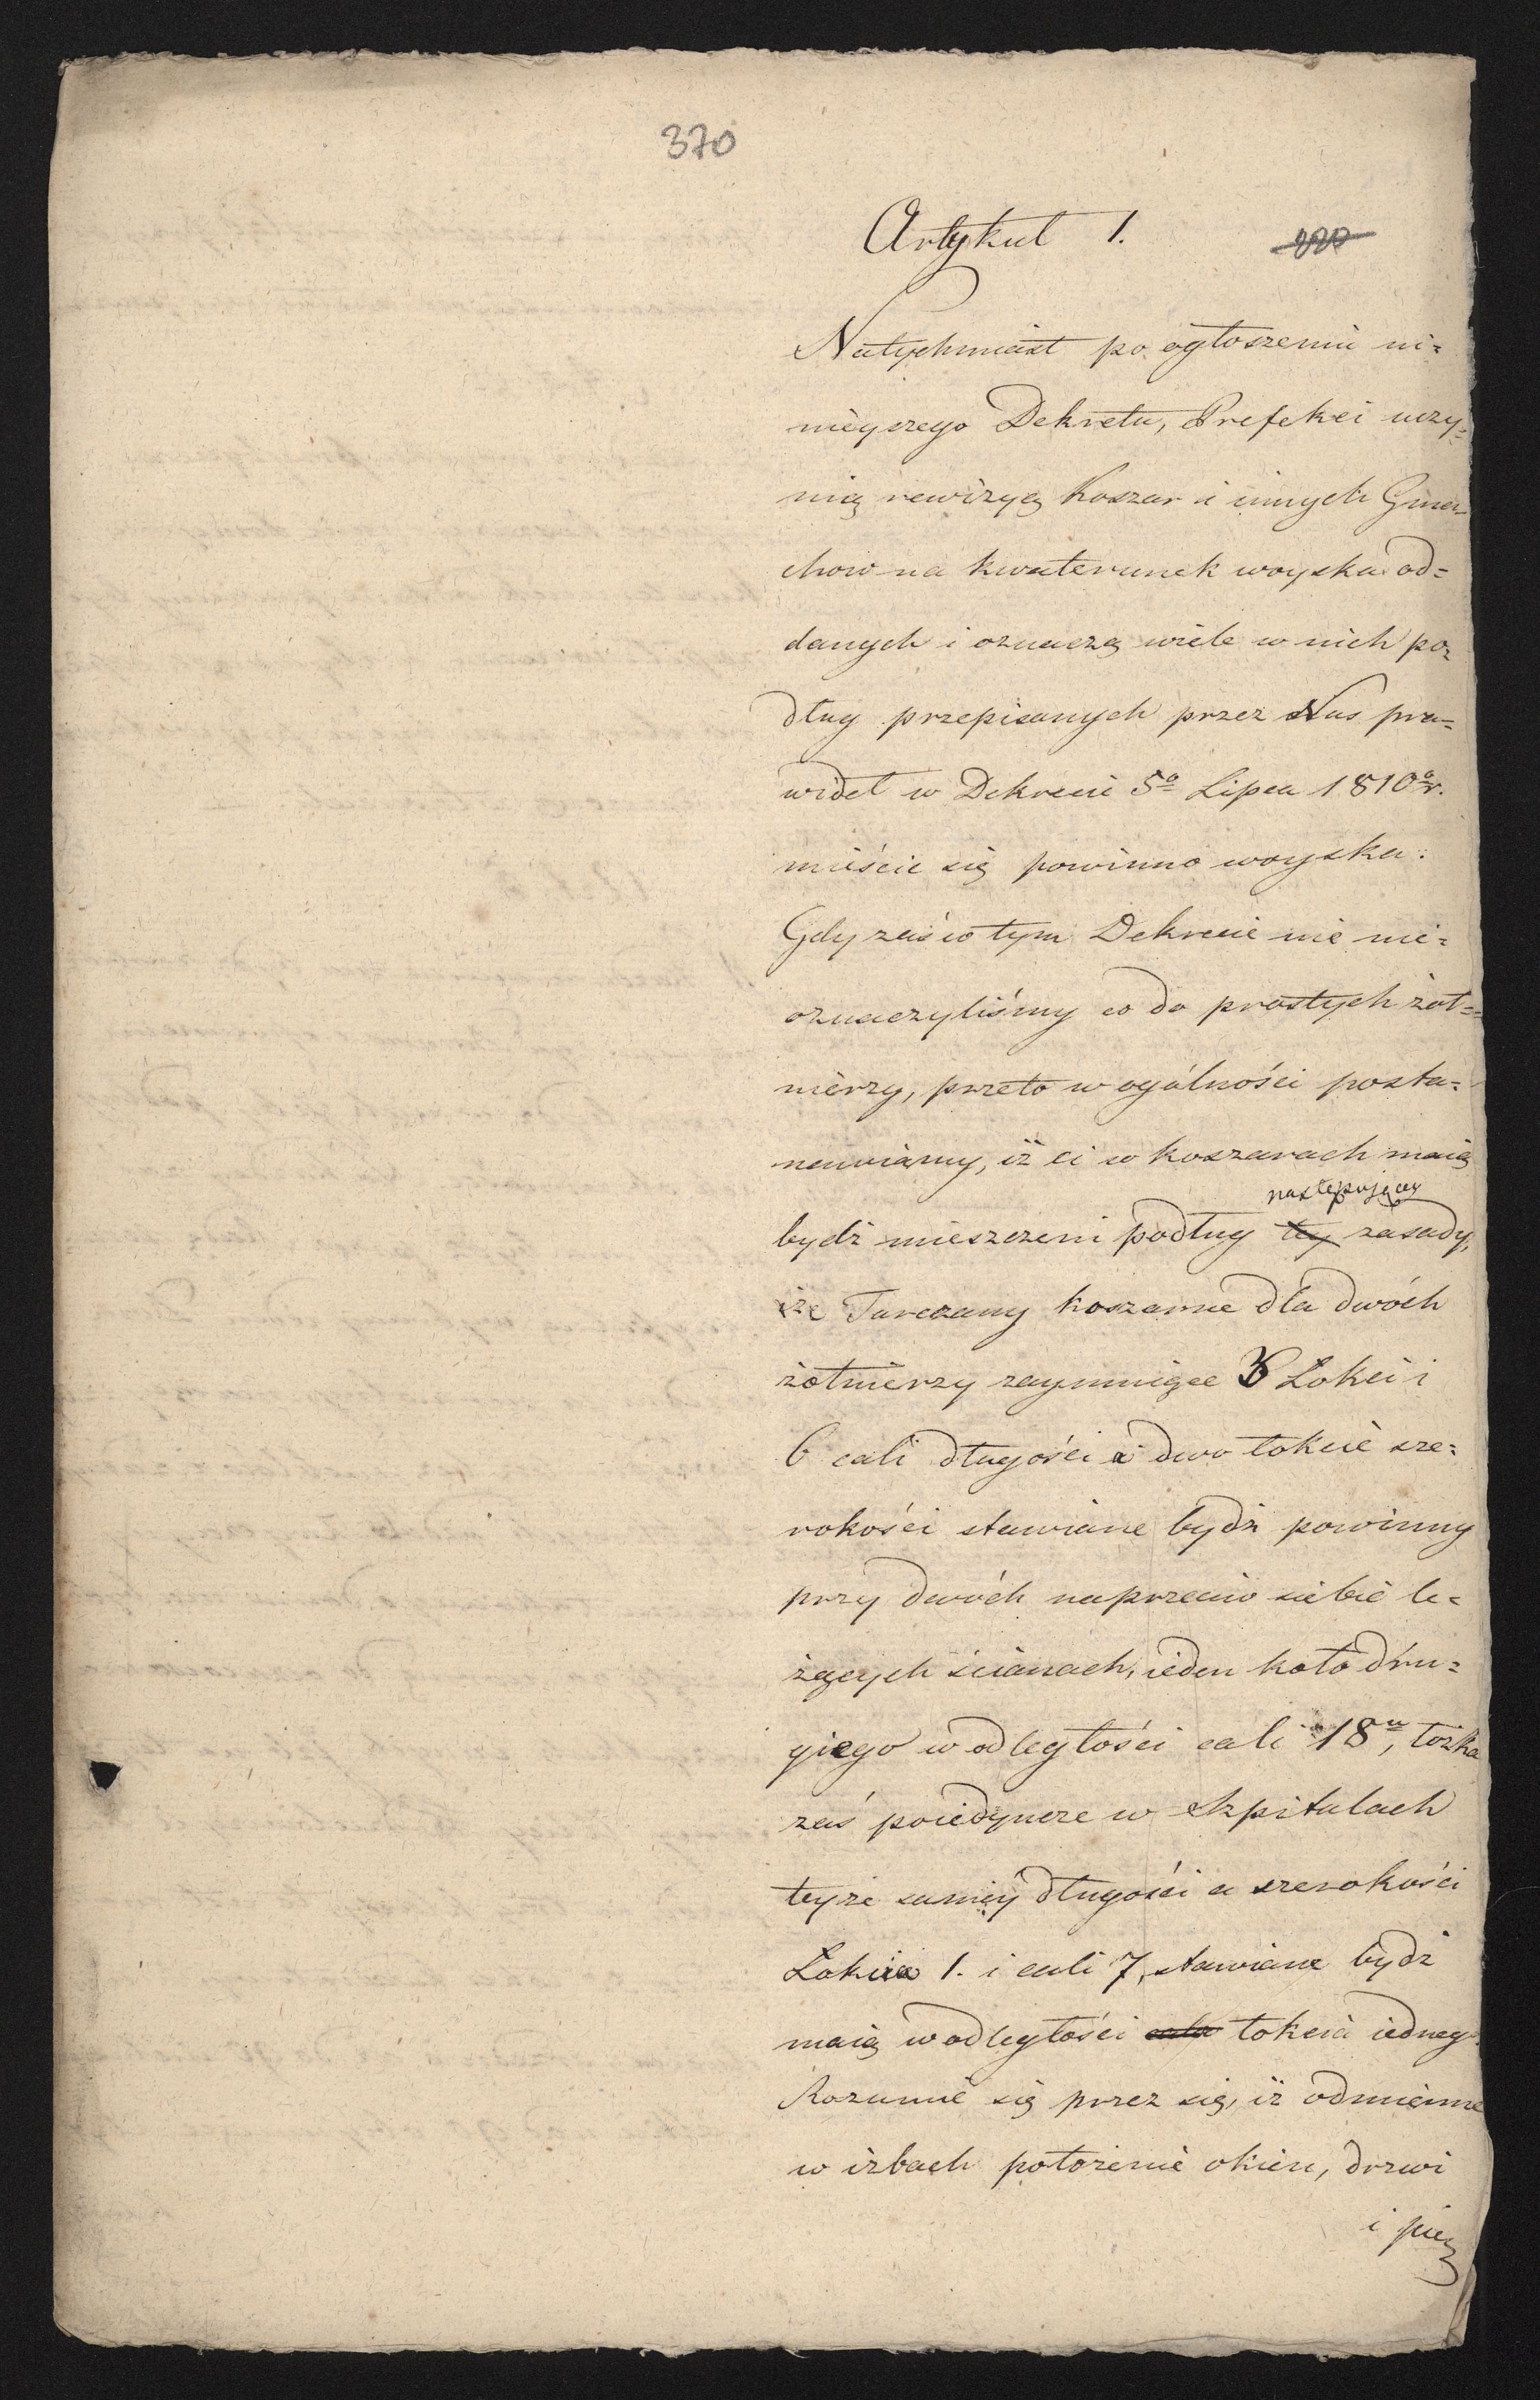 370
Artykuł 1.
Natychmiast po ogłoszeniu ni=
nieyszego Dekretu, Prefekci uczy=
nią rewizyą Koszar i innych Gma-
chow na kwaterunek woyska od=
danych i oznaczą wiele w nich po=
dług przepisanych przez Nas pra=
wideł w Dekrecie 5º Lipca 1810º r.
mieścić się powinno woyska.
Gdy zaś w tym Dekrecie nic nie=
oznaczyliśmy co do prostych żoł=
nierzy, przeto w ogólności posta=
nawiamy, iż ci w koszarach maią
następującey
bydź mieszczeni podług tey zasady,
że Tarczany koszarne dla dwóch
żołnierzy zaymuiące 3 Łokci i
6 cali długości a dwa łokcie sze=
rokości stawiane bydź powinny
przy dwóch naprzeciw siebie le=
żących ścianach, ieden koło dru=
giego w odległości cali 18u, łóżka
zaś poiedyncze w Szpitalach
teyże samey długości a szerokości
Łokcia 1. i cali 7, stawiane bydź
maią w odległości łokcia iednego.
Rozumie się przez się, iż odmienne
w izbach położenie okien, drzwi
i piecy